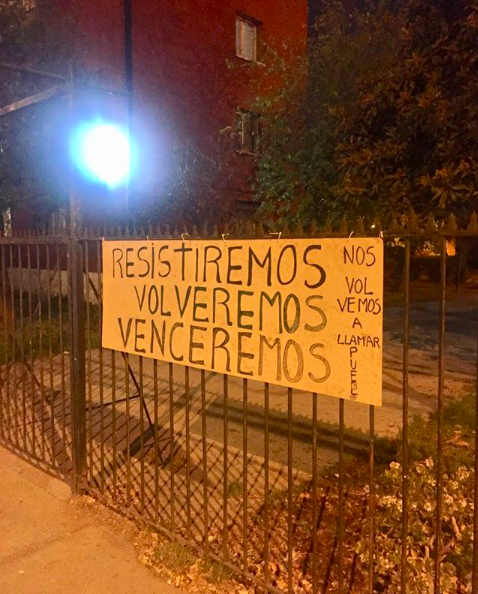 RESISTIREMOS
VOLVEREMOS
VENCEREMOS
NOS
VOL
VEMOS
A
LLAMAR